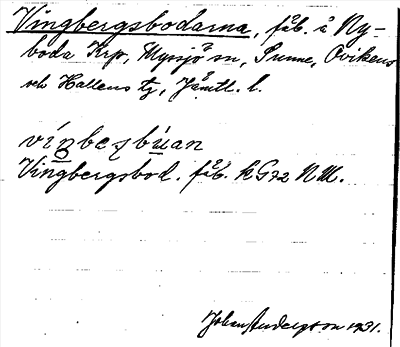 Vingbergsbodarna, fäb. å Ny-
boda Krp, Myssjö sn, Sunne, Ovikens
och Hallens tg, Jämtl. l.
víŋbæʂbúan
Vingbergsbod. fäb. kG72 NM.
Johan Anderzson 1931.